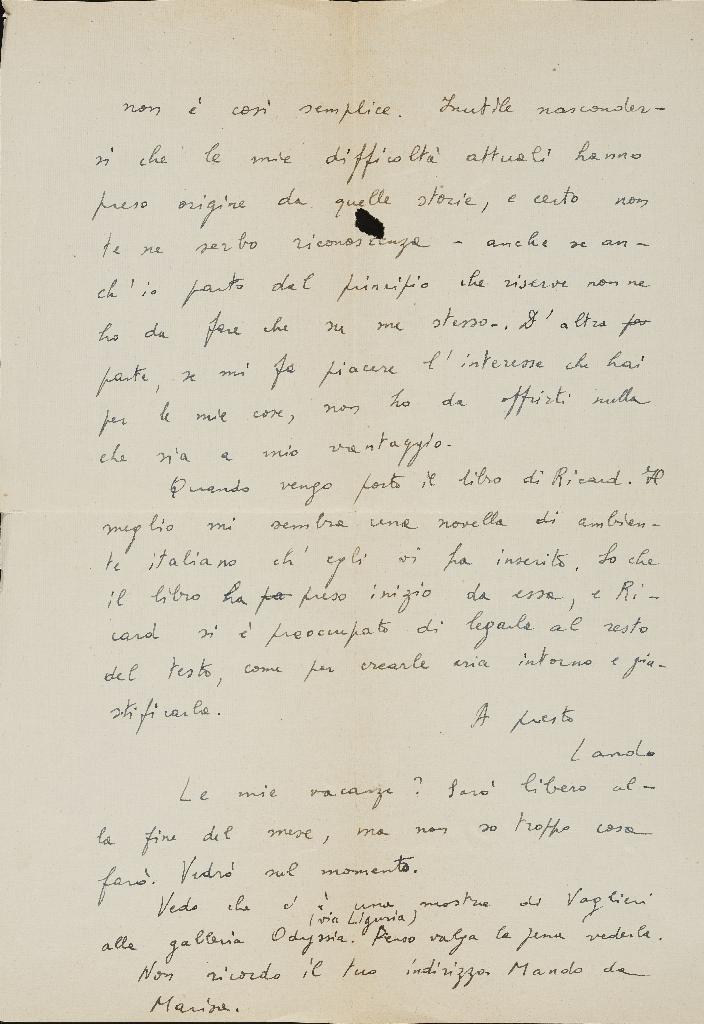 non è così semplice. Inutile nasconder-
si che le mie difficoltà attuali hanno
preso origine da quelle storie, e certo non
te ne serbo riconoscenza - anche se an-
ch'io parto dal principio che riserve non ne
ho da fare che su me stesso. D'altra per
parte, se mi fa piacere l'interesse che hai
per le mie cose, non ho da offrirti nulla
che sia a mio vantaggio.
Quando vengo porto il libro di Ricard. Il
meglio mi sembra una novella di ambien-
te italiano ch'egli vi ha inserito. So che
il libro ha pa preso inizio da essa, e Ri-
card si è preoccupato di legarla al resto
del testo, come per crearle aria intorno e giu-
stificarla.
A presto
Lando
Le mie vacanze? Sarò libero al-
la fine del mese, ma non so troppo cosa
farò. Vedrò sul momento.
Vedo che c'è una mostra di Vaglieri
(via Liguria)
alla galleria Odyssia. Penso valga la pena vederla.
Non ricordo il tuo indirizzo. Mando da
Marisa.